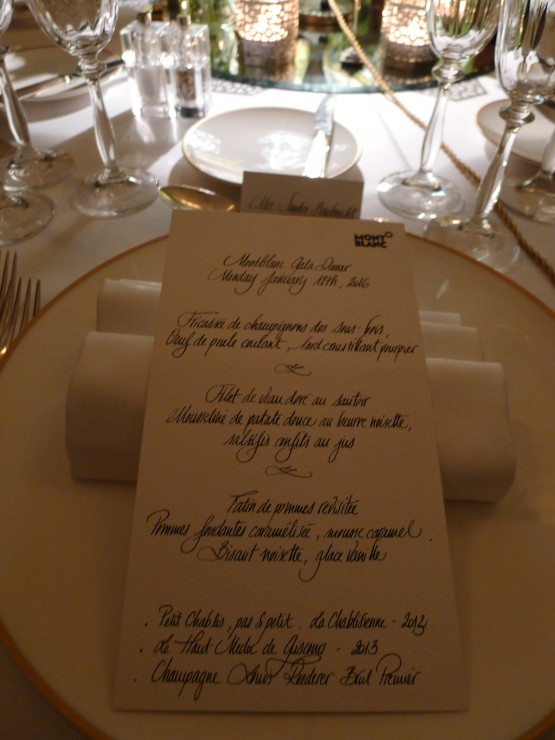 Mrs Sandra
MONT
BLANC
Montblanc Gala Dinner
Monday January 18th, 2016
Fricassée de champignons des sous-bois,
Œuf de poule coulant, lard croustillant pourpier
Filet de Veau doré au sautoir
Mousseline de patate douce au beurre noisette,
salsifis confits au jus
Tatin de pommes revisitée
Pommes fondantes caramélisée, mousse caramel,
Biscuit noisette, glace Vanille
. Petit Chablis, pas si petit. La Chablisienne - 2012
. Le Haut Medoc de Giscours - 2013
. Champagne Louis Roederer Brut Premier